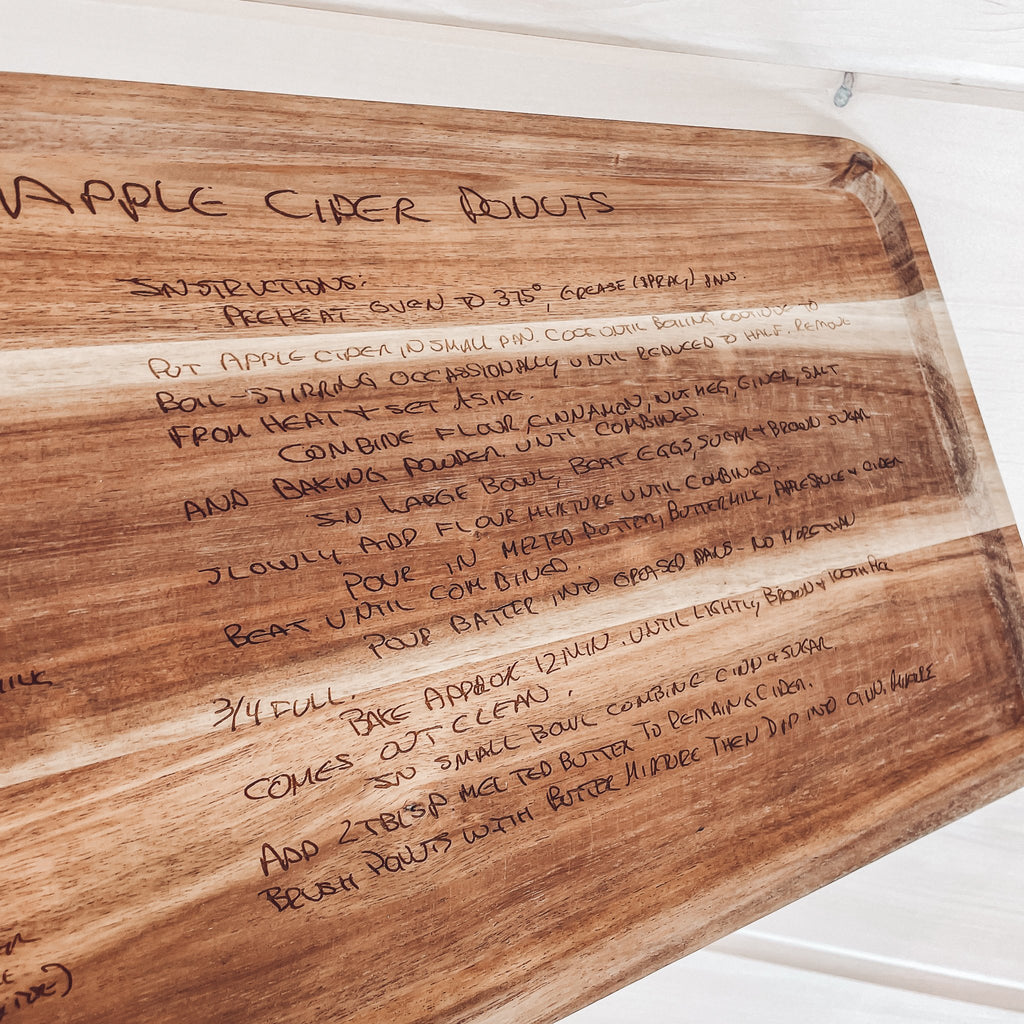 APPLE CIDER DONUTS
INSTRUCTIONS:
PREHEAT OVEN TO 375°, GREASE (SPRAY) PANS.
PUT APPLE CIDER IN SMALL PAN. COOK UNTIL BOILING CONTINUE TO
BOIL - STIRRING OCCASSIONALLY UNTIL REDUCED TO HALF. REMOVE
FROM HEAT & SET ASIDE.
COMBINE FLOUR, CINNAMON, NUTMEG, GINER, SALT
AND BAKING POWDER. UNTIL COMBINED.
IN LARGE BOWL, BEAT EGGS, SUGAR & BROWN SUGAR
SLOWLY ADD FLOUR MIXTURE UNTIL COMBINED.
POUR IN MELTED BUTTER, BUTTERMILK, APPLESAUCE & CIDER
BEAT UNTIL COMBINED.
POUR BATTER INTO GREASED PANS - NO MORE THAN
3/4 FULL.
BAKE APPROX 12 MIN. UNTIL LIGHTLY BROWN & TOOTH PICK
COMES OUT CLEAN.
IN SMALL BOWL COMBINE CINN & SUGAR.
ADD 2 TBLSP MELTED BUTTER TO REMAING CIDER.
BRUSH DONUTS WITH BUTTER MIXTURE THEN DIP INTO CINN. MIXTURE